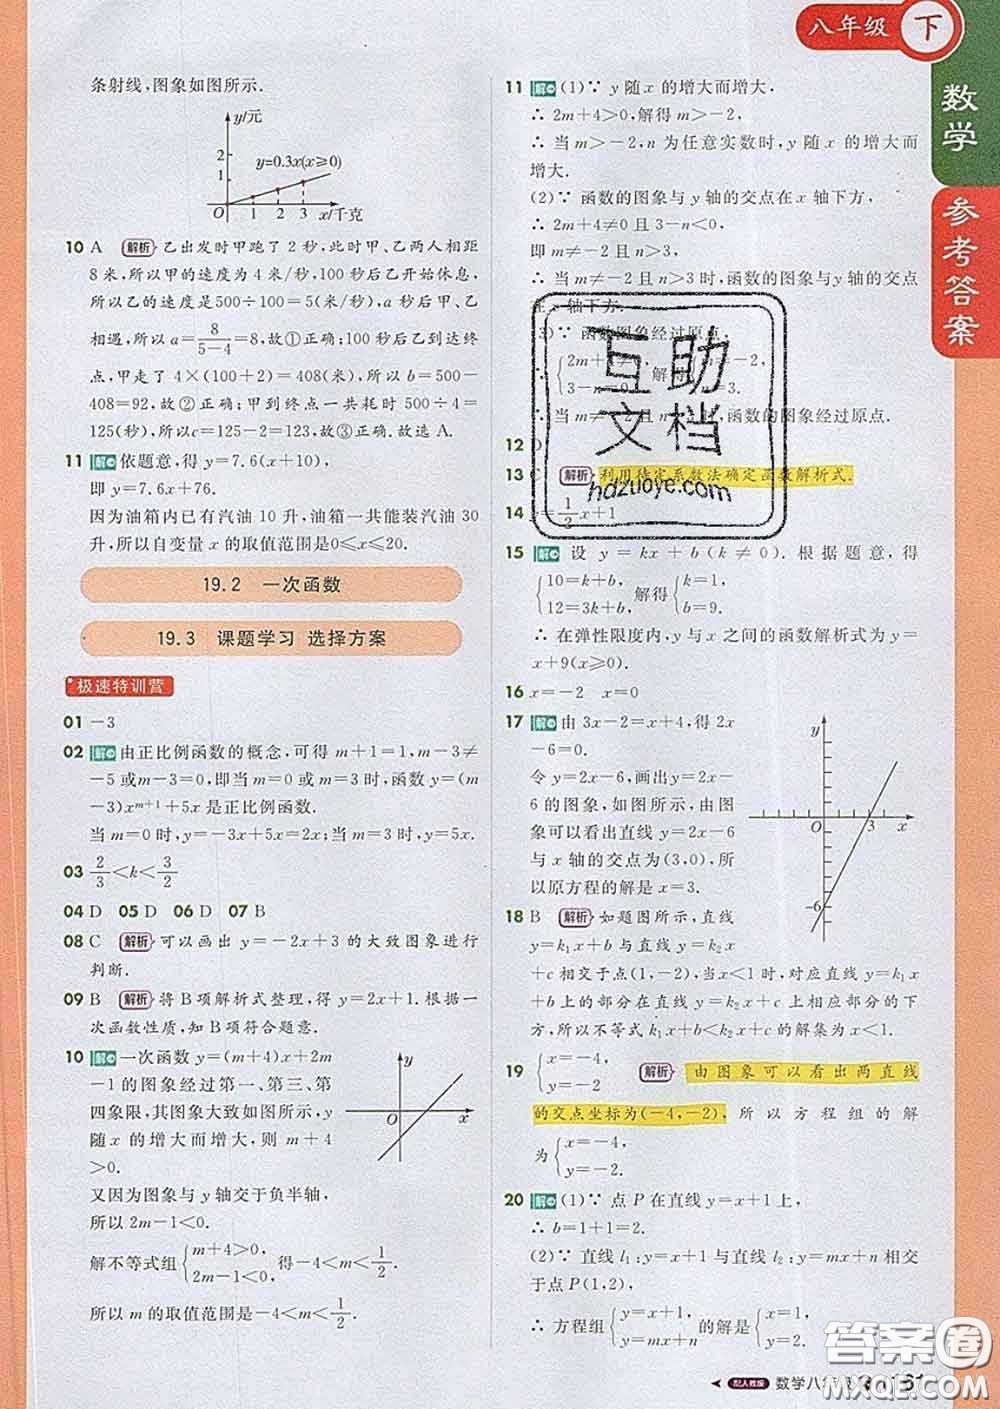 八年级 下
数学
参考答案
条射线,图象如图所示.
y/元
2
1
y=0.3x(x≥0)
O 1 2 3 x/千克
10 A 解析 乙出发时甲跑了2秒,此时甲、乙两人相距
8米,所以甲的速度为4米/秒,100秒后乙开始休息,
所以乙的速度是500÷100=5(米/秒),所以甲、乙
相遇,所以a=8/(5-4)=8,故①正确;100秒后乙到达终
点,甲走了4×(100+2)=408(米),所以b=500-
408=92,故②正确;甲到终点一共耗时500÷4=
125(秒),所以c=125-2=123,故③正确.故选A.
11 解 依题意,得y=7.6(x+10),
即y=7.6x+76.
因为油箱内已有汽油10升,油箱一共能装汽油30
升,所以自变量x的取值范围是0≤x≤20.
19.2 一次函数
19.3 课题学习 选择方案
极速特训营
01 -3
02 解 由正比例函数的概念,可得m+1=1,m-3≠
-5或m-3=0,即当m=0或m=3时,函数y=(m
-3)x^(m+1)+5x是正比例函数.
当m=0时,y=-3x+5x=2x;当m=3时,y=5x.
03 2/3<k<3/2
04 D 05 D 06 D 07 B
08 C 解析 可以画出y=-2x+3的大致图象进行
判断.
09 B 解析 将B项解析式整理,得y=2x+1.根据一
次函数性质,知B项符合题意.
10 解 一次函数y=(m+4)x+2m
-1的图象经过第一、第三、第
四象限,其图象大致如图所示,y
随x的增大而增大,则m+4
>0.
y
O x
又因为图象与y轴交于负半轴,
所以2m-1<0.
解不等式组{m+4>0, 2m-1<0, 得-4<m<1/2.
所以m的取值范围是-4<m<1/2.
11 解 (1)∵ y随x的增大而增大,
∴ 2m+4>0,解得m>-2.
∴ 当m>-2,n为任意实数时,y随x的增大而
增大.
(2)∵ 函数的图象与y轴的交点在x轴下方,
∴ 2m+4≠0且3-n<0,
即m≠-2且n>3.
∴ 当m≠-2且n>3时,函数的图象与y轴的交点
在x轴下方.
3)∵ 函数图象经过原点,
∴ 当m≠-2,函数的图象经过原点.
12 D
13 C 解析 利用待定系数法确定函数解析式.
14 y=1/2x+1
15 解 设y=kx+b(k≠0).根据题意,得
{10=k+b, 12=3k+b, 解得{k=1, b=9.
∴ 在弹性限度内,y与x之间的函数解析式为y=
x+9(x≥0).
16 x=-2 x=0
17 解 由3x-2=x+4,得2x
-6=0.
令y=2x-6,画出y=2x-
6的图象,如图所示,由图
象可以看出直线y=2x-6
与x轴的交点为(3,0),所
以原方程的解是x=3.
y
O 3 x
-6
18 B 解析 如题图所示,直线
y=k₁x+b与直线y=k₂x
+c相交于点(1,-2),当x<1时,对应直线y=k₁x
+b的部分在直线y=k₂x+c的部分的下
方,所以不等式k₁x+b<k₂x+c的解集为x<1.
19 {x=-4, y=-2 解析 由图象可以看出两直线
的交点坐标为(-4,-2),所以方程组的解
为{x=-4, y=-2.
20 解 (1)∵ 点P在直线y=x+1上,
∴ b=1+1=2.
(2)∵ 直线l₁:y=x+1与直线l₂:y=mx+n相交
于点P(1,2),
∴ 方程组{y=x+1, y=mx+n的解是{x=1, y=2.
互助
文档
hdzuoye.com
配人教版 数学八年级
61
答案圈
MXQE.COM